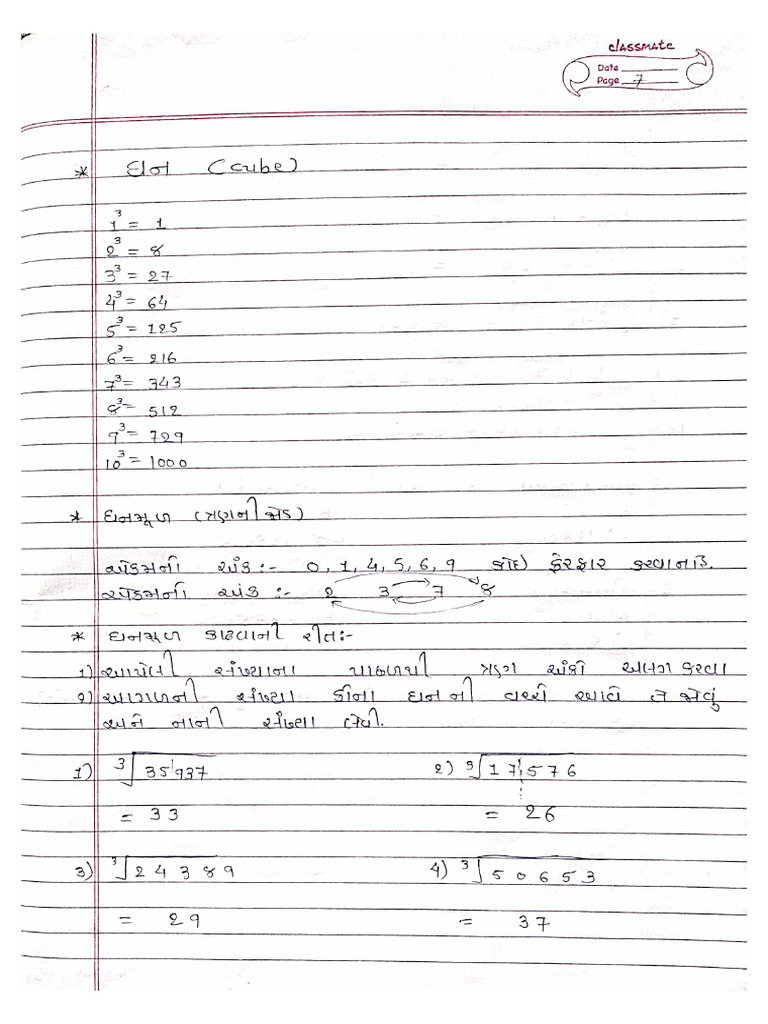 classmate
Date
Page 7
* ઘન (cube)
1³ = 1
2³ = 8
3³ = 27
4³ = 64
5³ = 125
6³ = 216
7³ = 343
8³ = 512
9³ = 729
10³ = 1000
* ઘનમૂળ (ત્રણની જોડ)
એકમની અંક :- 0, 1, 4, 5, 6, 9 કોઇ ફેરફાર કરવાનહિ.
એકમની અંક :- 2 3 7 8
* ઘનમૂળ કાઢવાની રીત:-
1) આપેલી સંખ્યાના પાછળથી ત્રણ અંકો અલગ કરવા
2) આગળની સંખ્યા કોના ઘન ની વચ્ચે આવે તે જોવું
અને નાની સંખ્યા લેવી.
1) ³√35937 2) ³√17576
= 33 = 26
3) ³√24389 4) ³√50653
= 29 = 37